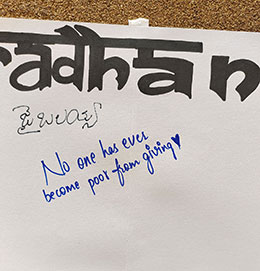 radhan
No one has ever
become poor from giving♥